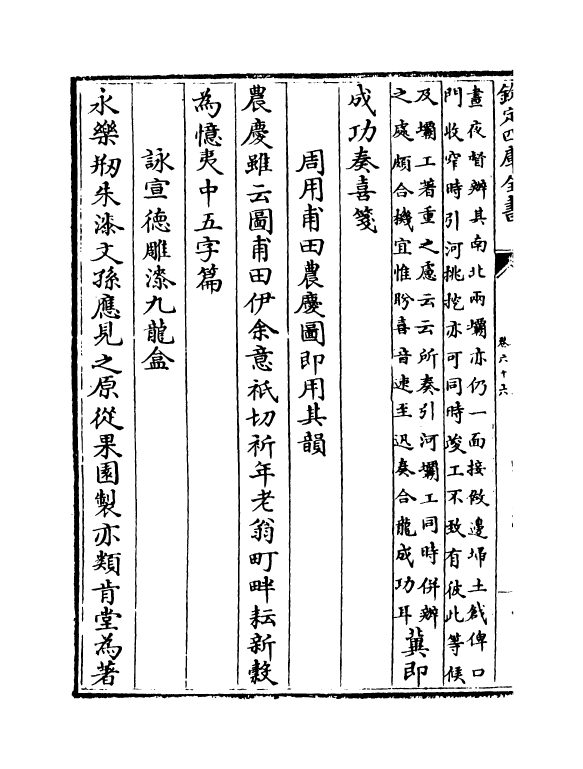 欽定四庫全書
卷六十六
晝夜督辦其南北兩壩亦仍一面接做邊埽土戧俾口
門收窄時引河挑挖亦可同時竣工不致有彼此等候
及壩工著重之慮云云所奏引河壩工同時併辦
之處頗合機宜惟盼喜音速至迅奏合龍成功耳
冀即
成功奏喜箋
周用甫田農慶圖即用其韻
農慶雖云圖甫田伊余意祇切祈年老翁町畔耘新穀
為憶夷中五字篇
詠宣德雕漆九龍盒
永樂刱朱漆文孫應見之原從果園製亦類肯堂為著